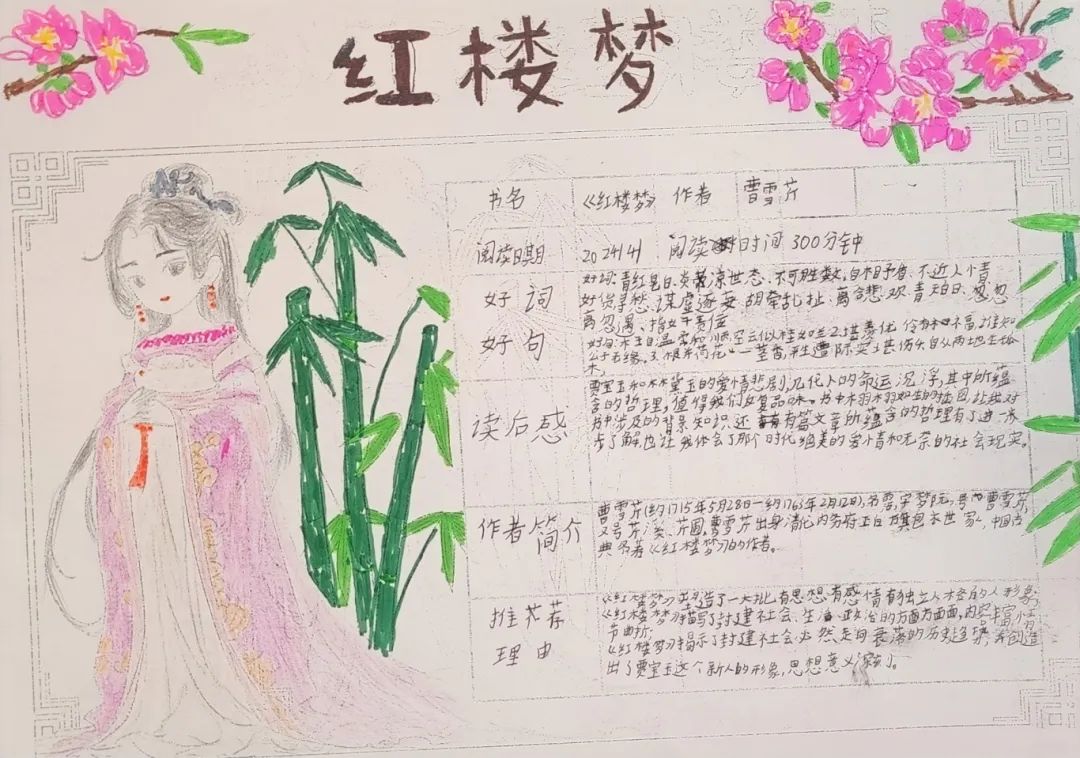 红楼梦
书名 《红楼梦》 作者 曹雪芹
阅读日期 2024.4 阅读时间 300分钟
好词
好句
好词:青红皂白、炎凉世态、不可胜数、自相矛盾、不近人情
寻愁、谋虚逐妄、胡牵乱扯、离合悲欢、青天白日、忽忽
读后感
贾宝玉和林黛玉的爱情悲剧,几代人的命运沉浮,其中所蕴
含的哲理,值得我们反复品味。书中栩栩如生的插图,让我对
书中涉及的背景知识还有有篇文章所蕴含的哲理有了进一步
步了解,也让我体会了那个时代绝美的爱情和无奈的社会现实。
作者简介
曹雪芹(约1715年5月28日—约1763年2月12日),名霑,字梦阮,号曹雪芹,
又号芹溪、芹圃,曹雪芹出身清代内务府正白旗包衣世家,中国古
典名著《红楼梦》的作者。
推荐
理由
《红楼梦》塑造了一大批有思想有感情有独立人格的人形象;
《红楼梦》描写了封建社会、生活、政治的方面方面面,内容丰富,情
节曲折;
《红楼梦》揭示了封建社会必然走向衰落的历史趋势,并创造
出了贾宝玉这个新人的形象,思想意义深刻。